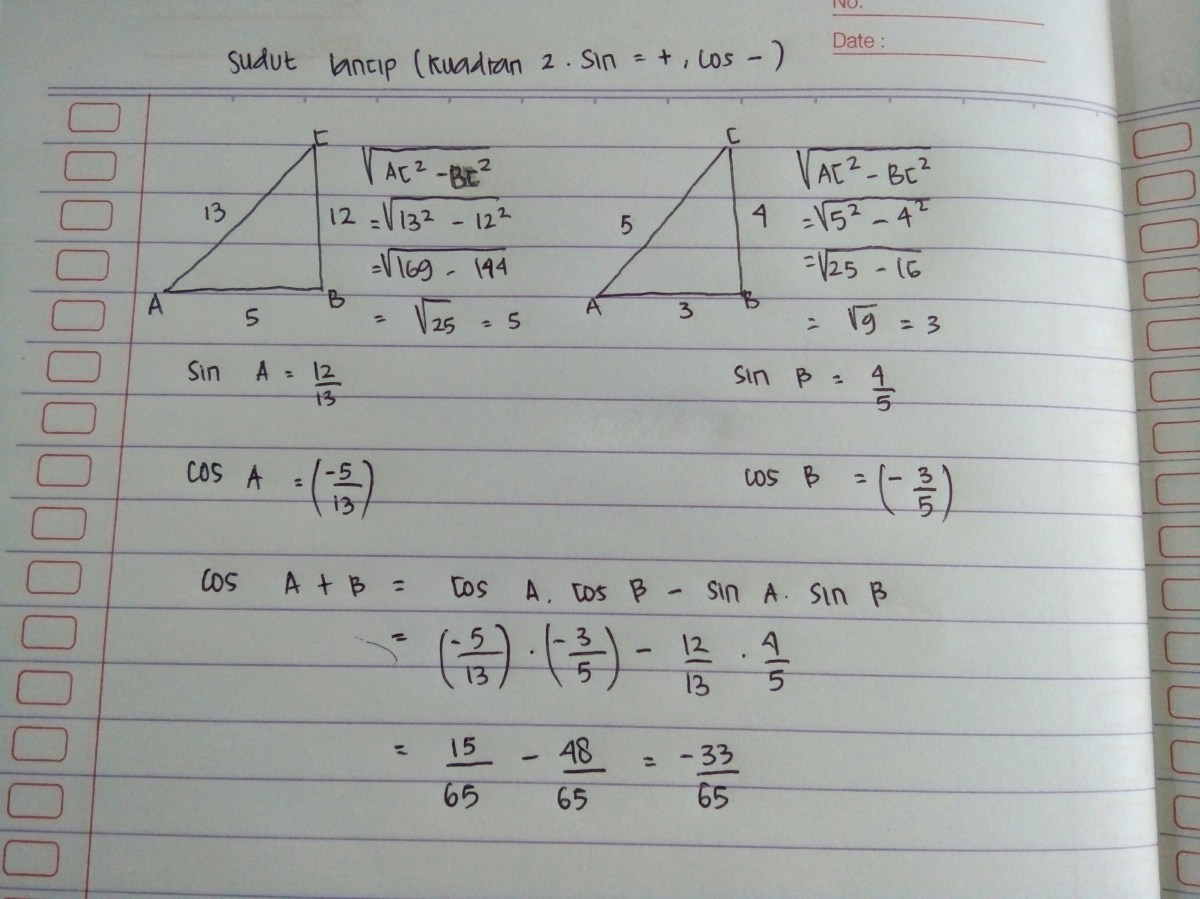 No.
Date :
Sudut lancip (Kuadran 2. Sin = +, Cos -)
C
13
12
A
B
5
√AC² - BC²
= √13² - 12²
= √169 - 144
= √25 = 5
C
5
4
A
B
3
√AC² - BC²
= √5² - 4²
= √25 - 16
= √9 = 3
Sin A = 12/13
Sin B = 4/5
Cos A = (-5/13)
Cos B = (-3/5)
Cos A + B = Cos A. Cos B - Sin A. Sin B
= (-5/13) · (-3/5) - 12/13 · 4/5
= 15/65 - 48/65 = -33/65